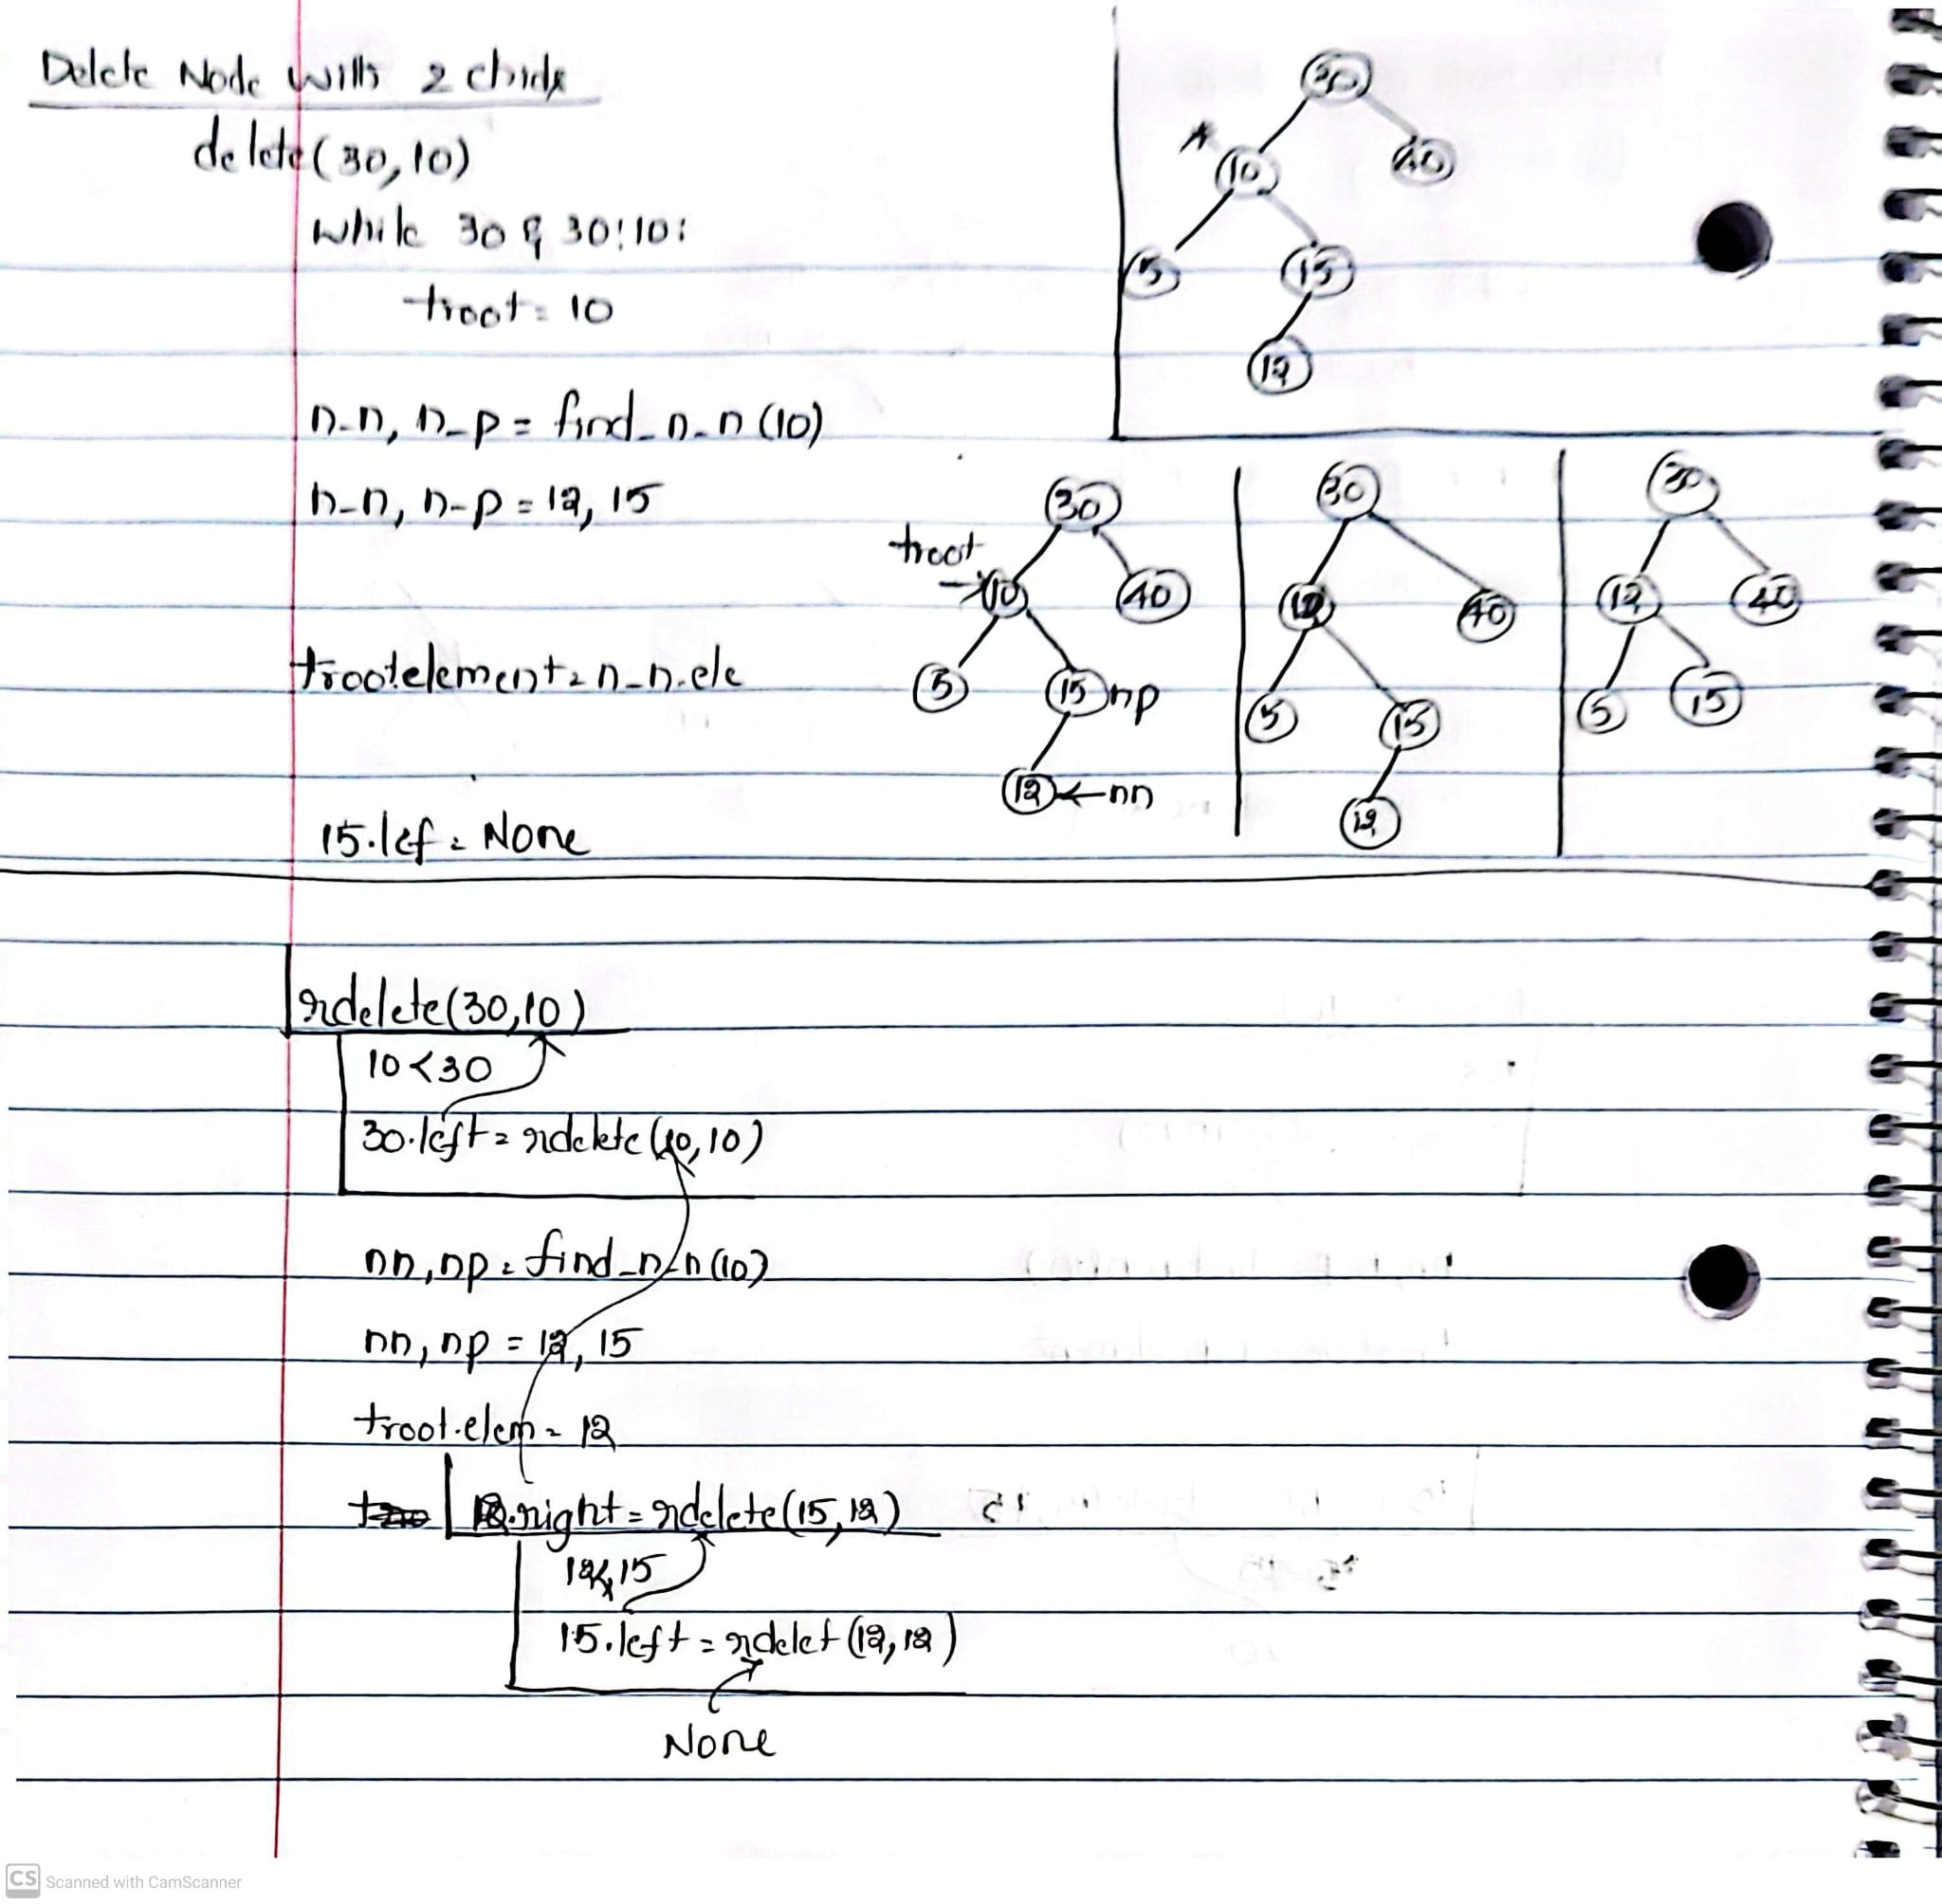 Delete Node with 2 childs
delete(30,10)
while 30 & 30!10:
troot = 10
n_n, n_p = find_n_n(10)
n_n, n_p = 12, 15
troot.element = n_n.ele
15.lef = None
30
10
40
5
15
12
30
troot
10
40
5
15 np
12 ← nn
30
12
40
5
15
12
30
12
40
5
15
rdelete(30,10)
10<30
30.left = rdelete(10,10)
nn, np = find_n_n(10)
nn, np = 12, 15
troot.elem = 12
12.right = rdelete(15,12)
12<15
15.left = rdelet(12,12)
None
CS Scanned with CamScanner